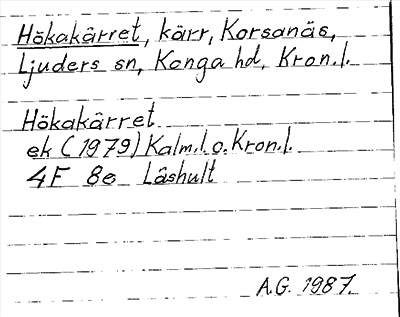 Hökakärret, kärr, Korsanäs,
Ljuders sn, Konga hd, Kron.l.
Hökakärret
ek (1979) Kalm.l.o.Kron.l.
4F 8e Låshult
A.G. 1987.